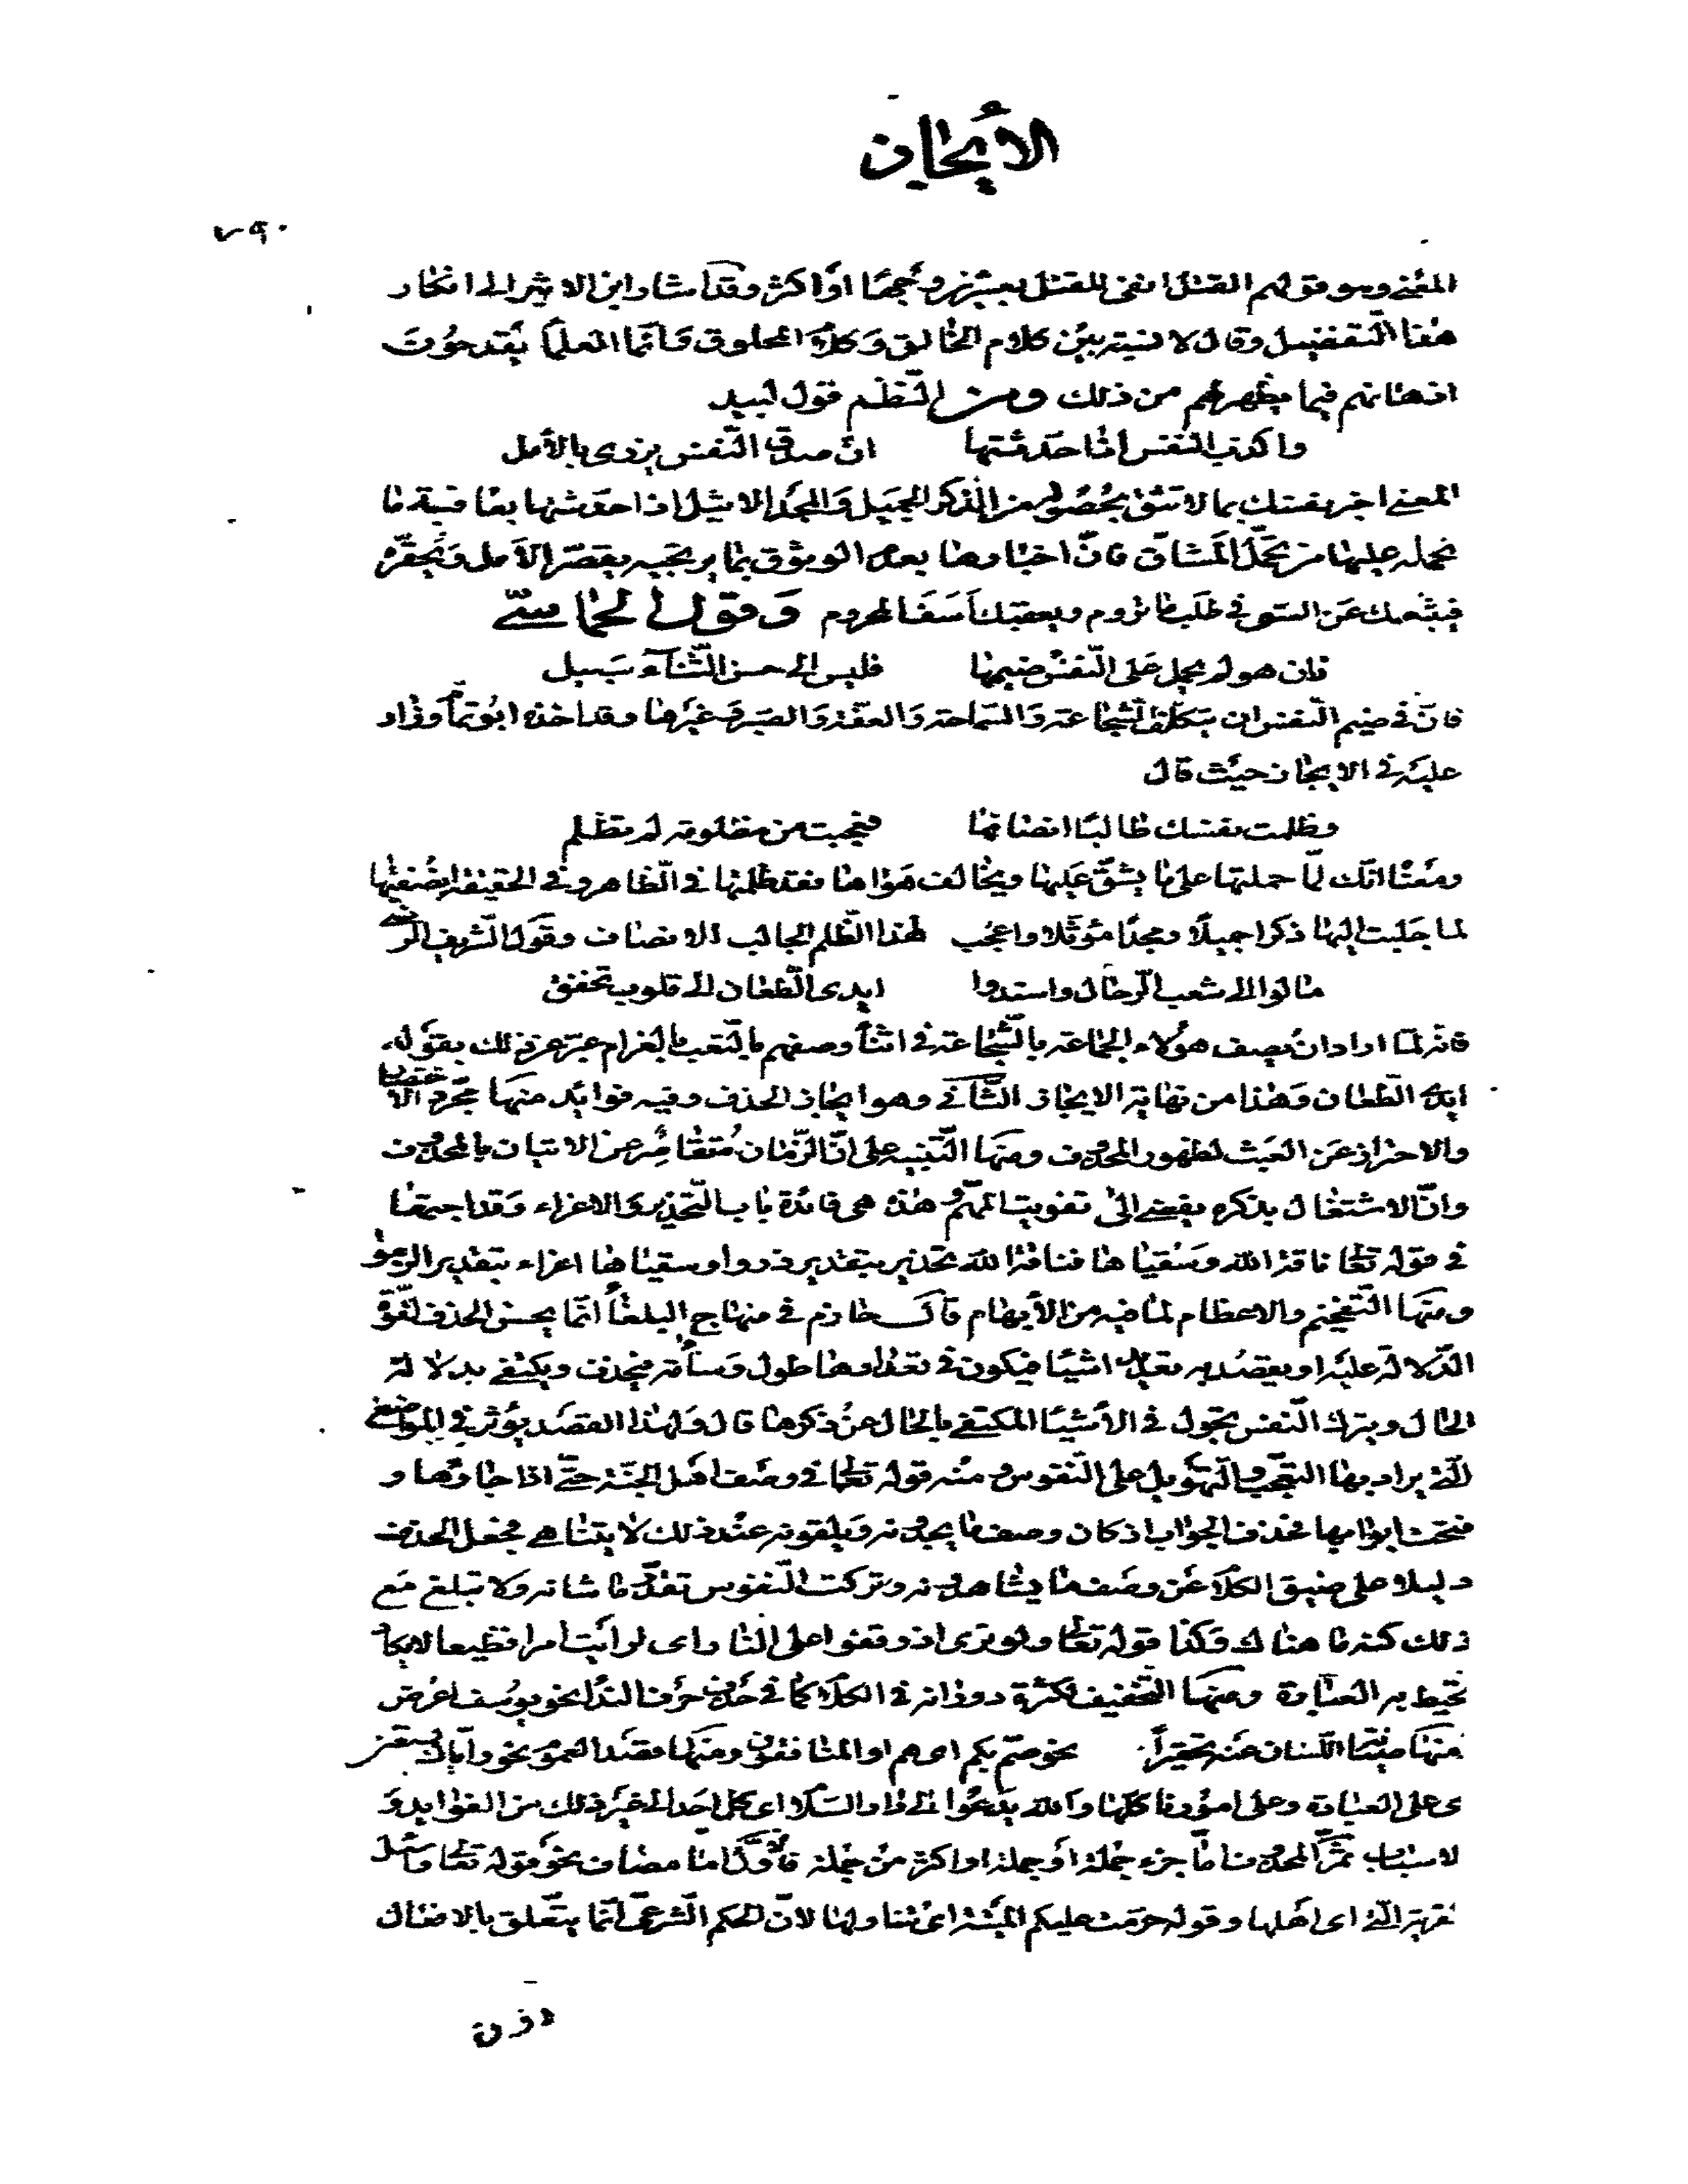 الأيجاز
٧٩٠
المعنى وهو قولهم القتل انفى للقتل بعشرين وجها او اكثر وقد اشار ابن الاثير الى انكار
هذا التفضيل وقال لا نسبة بين كلام الخالق وكلام المخلوق وانما العلما يقدحون
اذهانهم فيما يظهر لهم من ذلك ومن النظم قول لبيد
واكذب النفس اذا حدثتها ان صدق النفس يزرى بالأمل
المعنى اخبر نفسك بما لا تثق بحصوله من الذكر الجميل والمجد الاثيل اذا حدثتها بما فيه ما
تحمله عليها من تحمل المشاق فان اخبارها بعدم الوثوق بما يرتجيه يقصر الأمل ويحقره
فيثبطك عن السعى فى طلب ما تروم ويعقبك اسف المحروم وقول الحماسى
فان هو لم يحمل على النفس ضيمها فليس الى حسن الثناء سبيل
فان فى ضيم النفس ان يتكلف الشجاعة والسماحة والعفة والصبر وغيرها وقد اخذه ابو تمام وزاد
عليه فى الايجاز حيث قال
وظلمت نفسك طالبا انصافها فعجبت من مظلومة لم تظلم
ومعنا انك لما حملتها على ما يشق عليها ويخالف هواها فقد ظلمتها فى الظاهر وفى الحقيقة انصفتها
لما جلبت اليها ذكرا جميلا ومجدا مؤثلا واعجب لهذا الظلم الجالب الانصاف وقول الشريف الرضى
مالوا الى شعب الرحال واسندوا ايدى الطعان الى قلوب تخفق
فانه لما اراد ان يصف هؤلاء الجماعة بالشجاعة فى اثنا وصفهم بالتعب بالغرام عبر عن ذلك بقوله
ايدى الطعان وهذا من نهاية الايجاز الثانى وهو ايجاز الحذف وفيه فوائد منها مجرد الاختصار
والاحتراز عن العبث لظهور المحذوف ومنها التنبيه على ان الزمان متقاصر عن الاتيان بالمحذوف
وان الاشتغال بذكره يفضى الى تفويت المهم وهذه هى فائدة باب التحذير والاغراء وقد اجتمعا
فى قوله تعالى ناقة الله وسقياها فناقة الله تحذير بتقدير ذروا وسقياها اغراء بتقدير الزموا
ومنها التفخيم والاعظام لما فيه من الأبهام قال حازم فى منهاج البلغا انما يحسن الحذف لقوة
الدلالة عليه او يقصد به تعديد اشيا فيكون فى تعدادها طول وسآمة فيحذف ويكتفى بدلالة
الحال ويترك النفس تجول فى الأشيا المكتفى بالحال عن ذكرها قال ولهذا القصد يؤثر فى المواضع
التى يراد بها التعجب والتهويل على النفوس ومنه قوله تعالى فى وصف اهل الجنة حتى اذا جاؤها و
فتحت ابوابها فحذف الجواب اذ كان وصف ما يجدونه ويلقونه عند ذلك لا يتناهى فجعل الحذف
دليلا على ضيق الكلام عن وصف ما يشاهدونه وتركت النفوس تقدر ما شانه ولا تبلغ مع
ذلك كنه ما هنالك وكذا قوله تعالى ولو ترى اذ وقفوا على النار اى لرأيت امرا فظيعا لا يكاد
تحيط به العبارة ومنها التخفيف لكثرة دورانه فى الكلام كما فى حذف حرف الندا نحو يوسف اعرض
ومنها صيانة اللسان عنه تحقيرا نحو صم بكم اى هم او المنافقون ومنها قصد العموم نحو واياك نستعين
ى على العبادة وعلى امورنا كلها والله يدعوا الى دار السلام اى كل احد الى غير ذلك من الفوايد و
لاسباب ثم المحذوف اما جزء جملة او جملة او اكثر من جملة فالأول اما مضاف نحو قوله تعالى واسئل
لقرية التى اى اهلها وقوله حرمت عليكم الميتة اى تناولها لان الحكم الشرعى انما يتعلق بالافعال